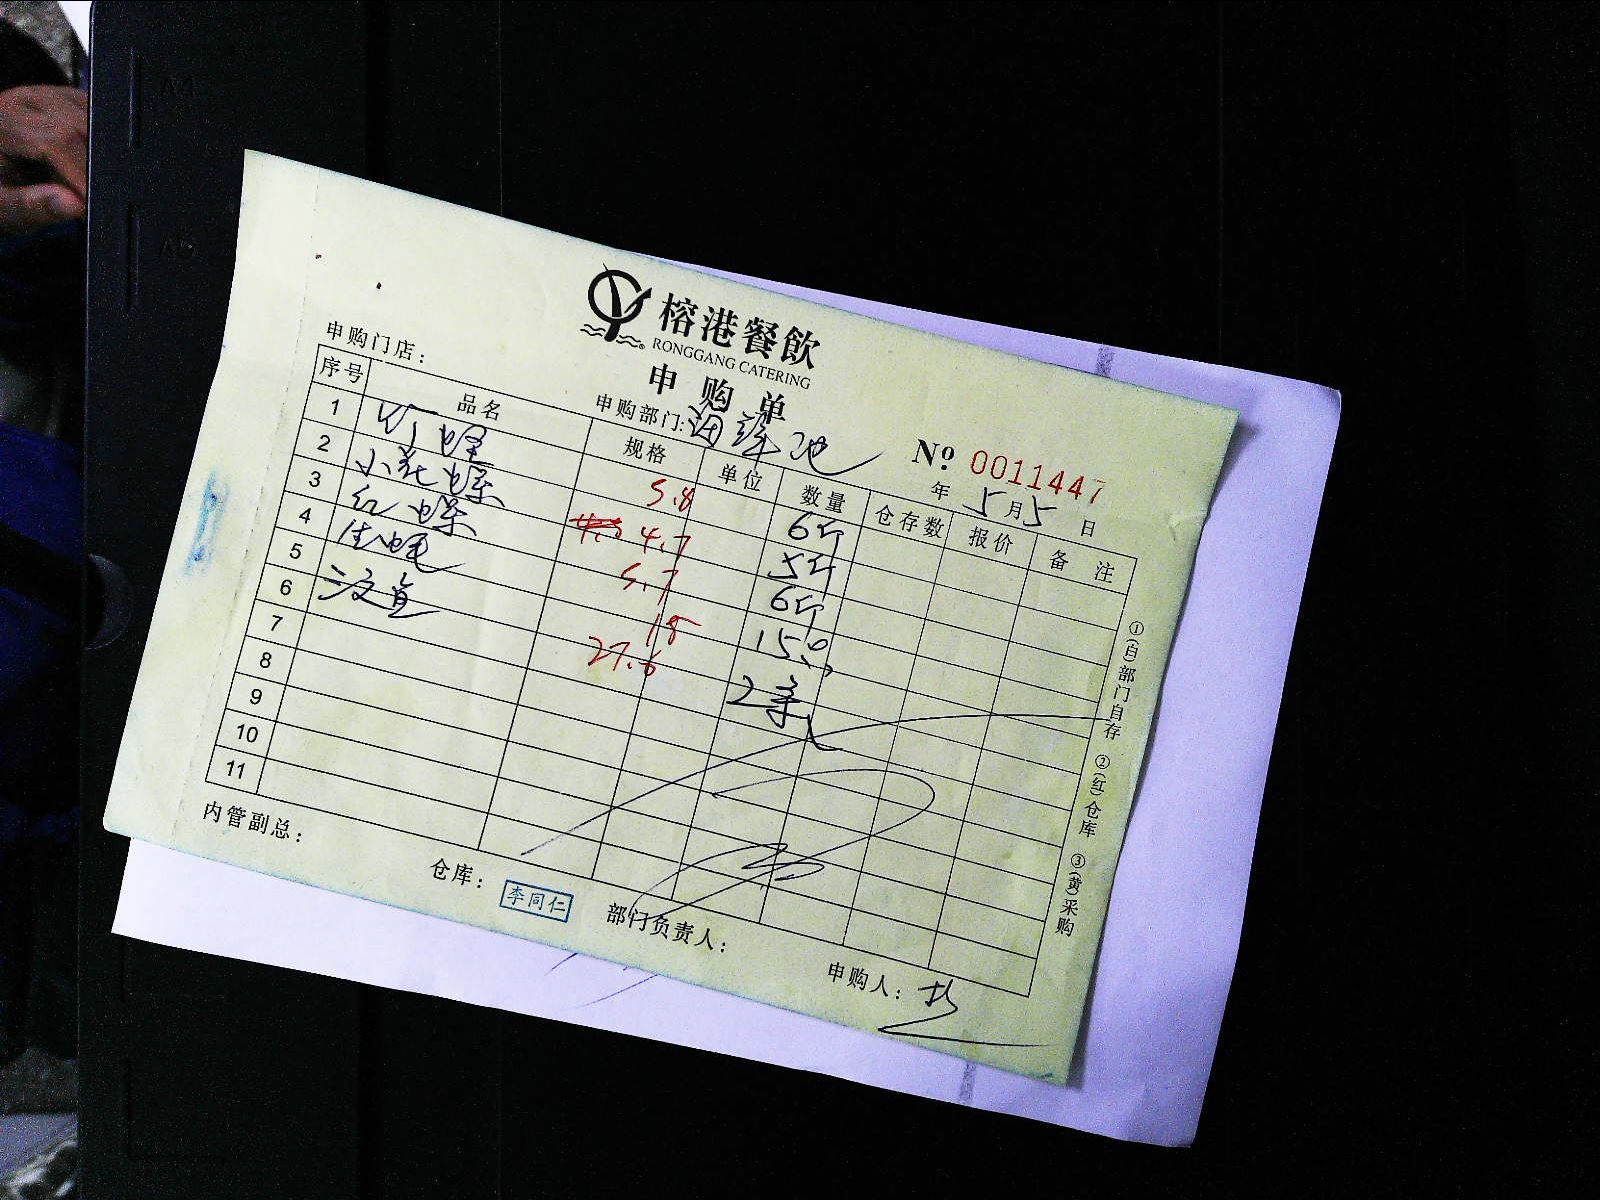 榕港餐飲
RONGGANG CATERING
申购单
申购门店：
申购部门：海鲜池
№ 0011447
年 5月5日
序号 品名 规格 单位 数量 仓存数 报价 备注
1 竹蛏 5.8 6斤
2 小花螺 4.7 5斤
3 红螺 5.7 6斤
4 生蚝 18 15只
5 27.6 2条
6
7
8
9
10
11
①(白)部门自存 ②(红)仓库 ③(黄)采购
内管副总：
仓库：李同仁
部门负责人：
申购人：
A4
A5